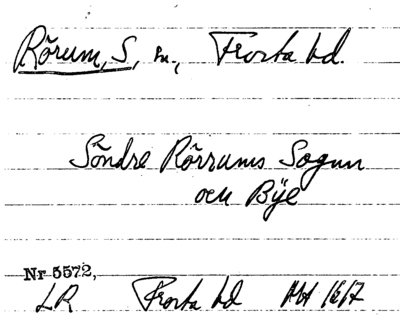 Rörum, S, sn, Frosta hd.
Söndre Rörrums Sognn
och Bÿe
Nr 5572,
LR Frosta hd